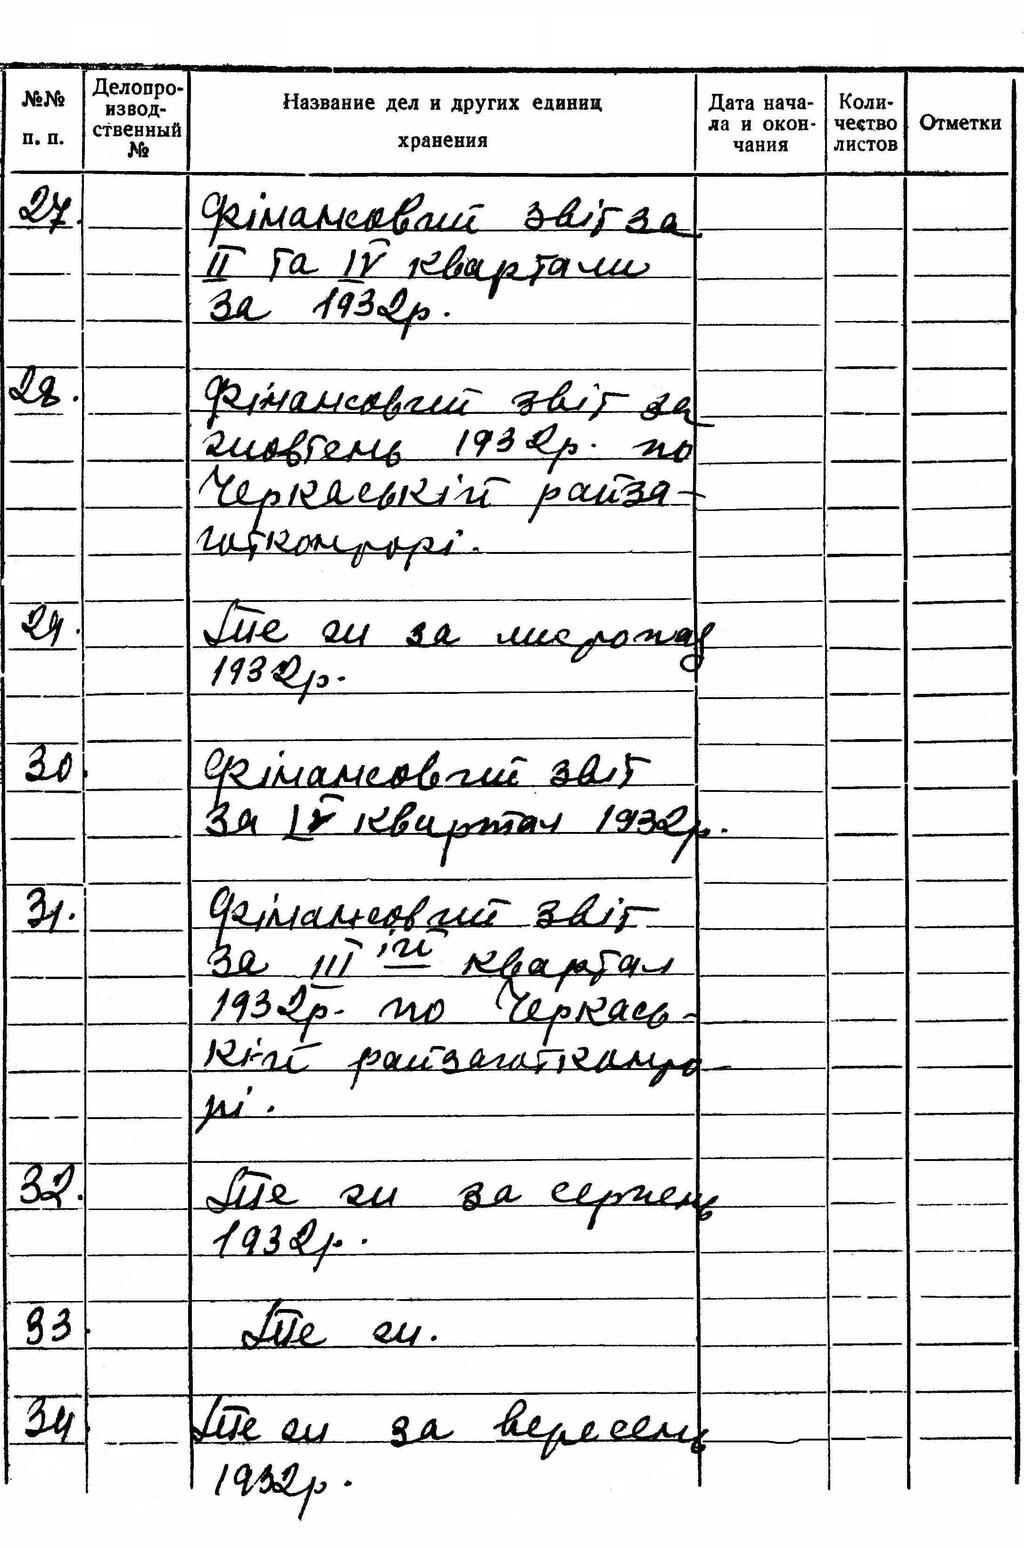 №№ п. п.
Делопро-
извод-
ственный
№
Название дел и других единиц
хранения
Дата нача-
ла и окон-
чания
Коли-
чество
листов
Отметки
27. Фінансовий звіт за
II та IV квартали
за 1932р.
28. Фінансовий звіт за
жовтень 1932р. по
Черкаській райза-
готконторі.
29. Те ж за листопад
1932р.
30. Фінансовий звіт
за IV квартал 1932р.
31. Фінансовий звіт
за III ій квартал
1932р. по Черкась-
кій райзаготконто-
рі.
32. Те ж за серпень
1932р.
33. Те ж.
34 Те ж за вересень
1932р.